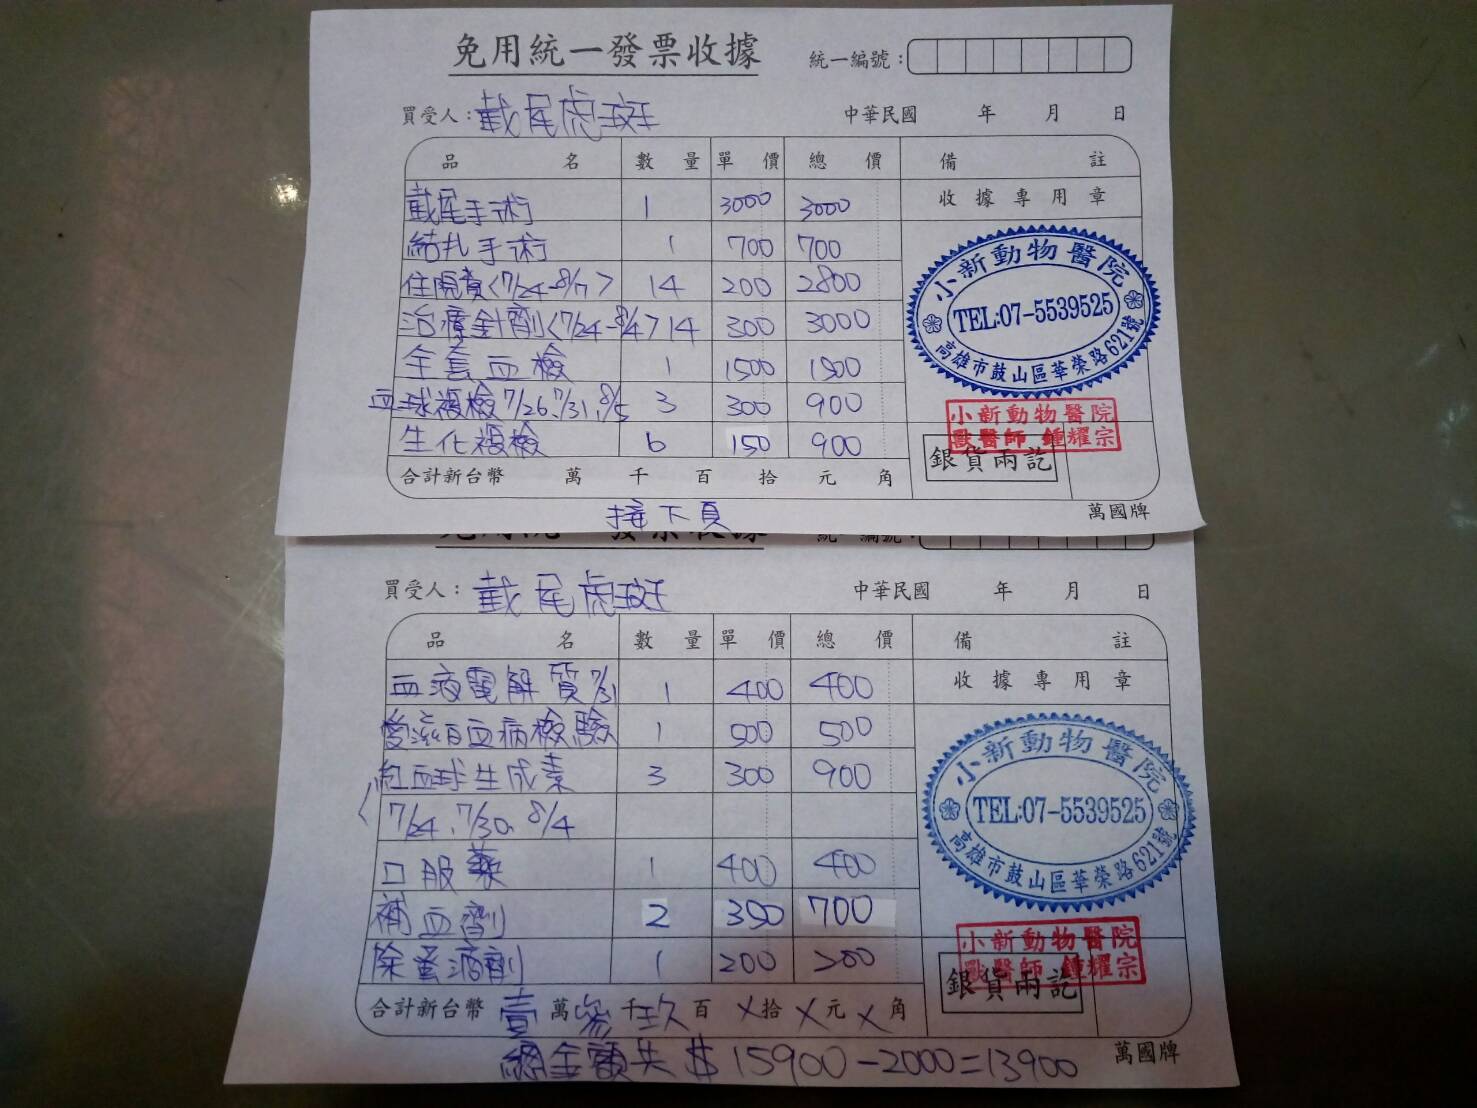 免用統一發票收據
統一編號：
買受人：戴尾虎斑
中華民國 年 月 日
品名 數量 單價 總價 備註
收據專用章
戴尾手術 1 3000 3000
結扎手術 1 700 700
住院費<7/24-8/7> 14 200 2800
治療針劑<7/24-8/4> 14 300 3000
全套血檢 1 1500 1500
血球複檢7/26、7/31、8/5 3 300 900
生化複檢 6 150 900
小新動物醫院
TEL:07-5539525
高雄市鼓山區華榮路621號
小新動物醫院
獸醫師 鍾耀宗
銀貨兩訖
合計新台幣 萬 千 百 拾 元 角
接下頁
萬國牌
免用統一發票收據
統一編號：
買受人：戴尾虎斑
中華民國 年 月 日
品名 數量 單價 總價 備註
收據專用章
血液電解質7/31 1 400 400
愛滋白血病檢驗 1 500 500
紅血球生成素 3 300 900
<7/24、7/30、8/4
口服藥 1 400 400
補血劑 2 350 700
除蚤滴劑 1 200 200
小新動物醫院
TEL:07-5539525
高雄市鼓山區華榮路621號
小新動物醫院
獸醫師 鍾耀宗
銀貨兩訖
合計新台幣 壹萬參千玖百X拾X元X角
總金額共$15900-2000=13900
萬國牌